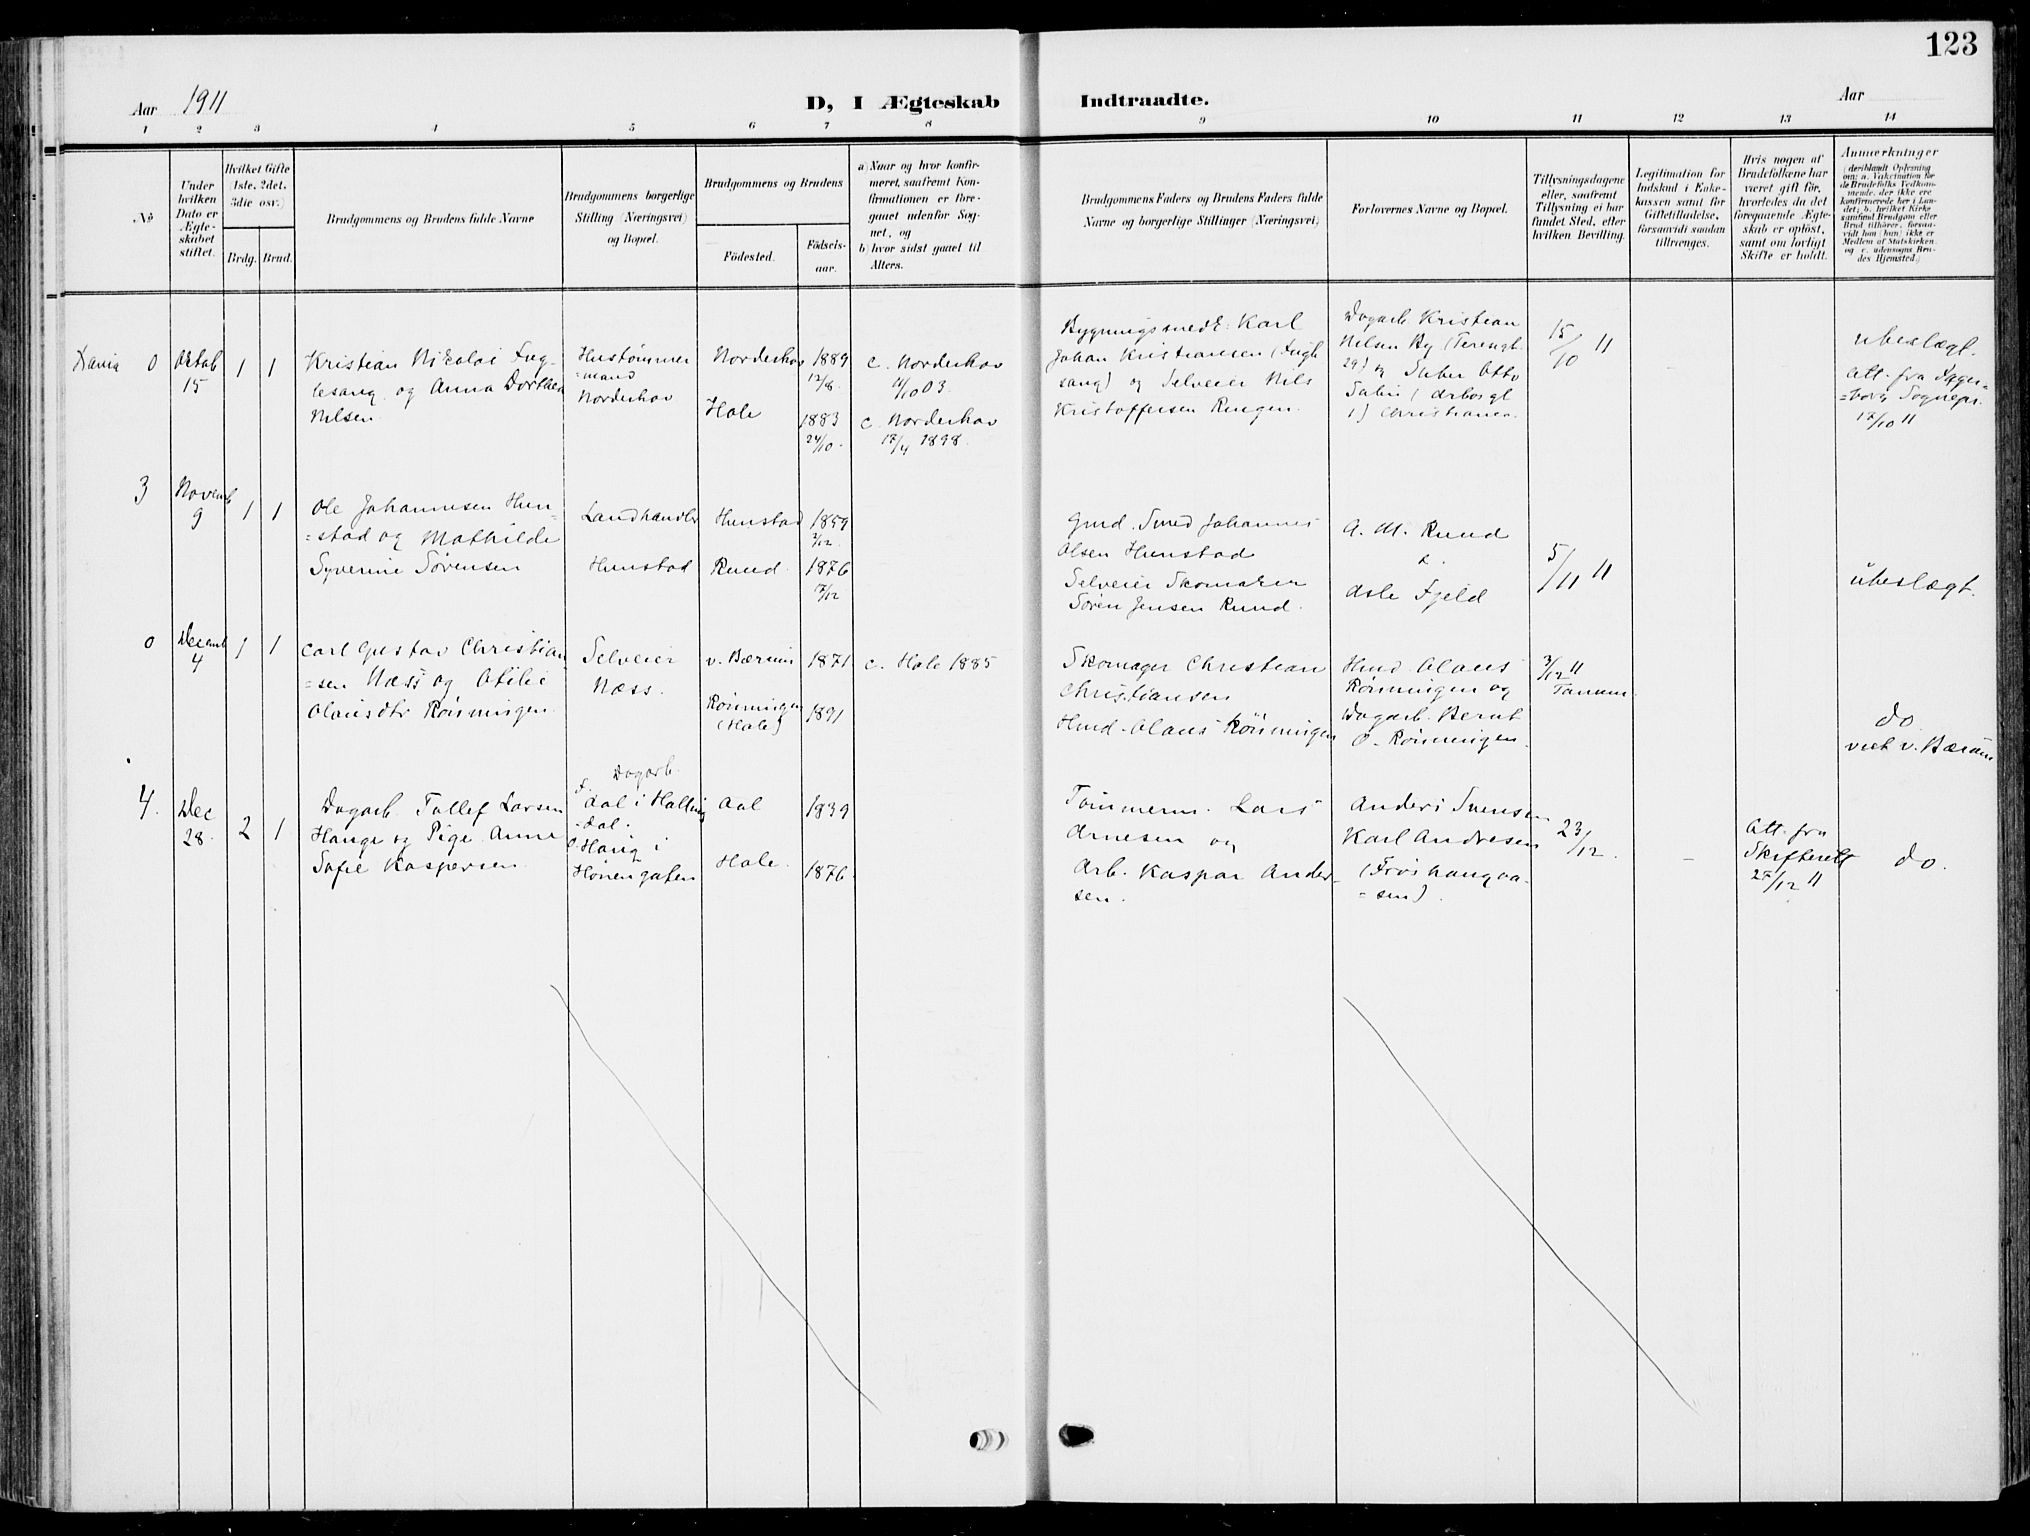 123
Aar 1911
D, I Ægteskab Indtraadte.
Aar
1 2 3 4 5 6 7 8 9 10 11 12 13 14
No.
Under hvilken Dato er Ægteskabet stiftet.
Hvilket Gifte 1ste, 2det, 3die osv.)
Brdg. Brud.
Brudgommens og Brudens fulde Navne
Brudgommens borgerlige Stilling (Næringsvei) og Bopæl.
Brudgommens og Brudens
Fødested.
Fødselsaar.
a) Naar og hvor konfirmeret, saafremt Konfirmationen er foregaaet udenfor Sognet, og
b) hvor sidst gaaet til Alters.
Brudgommens Faders og Brudens Faders fulde Navne og borgerlige Stillinger (Næringsvei)
Forlovernes Navne og Bopæl.
Tillysningsdagene eller, saafremt Tillysning ei har fundet Sted, efter hvilken Bevilling.
Legitimation for Indskud i Enkekassen samt for Giftetilladelse, forsaavidt saadan tiltrenges.
Hvis nogen af Brudefolkene har været gift før, hvorledes da det foregaaende Ægteskab er opløst, samt om lovligt Skifte er holdt.
Anmerkninger
(deriblandt Oplysning om: a. Vaksination for de Brudefolks Vedkommende, der ikke ere konfirmerede her i Landet; b. hvilket Kirkesamfund Brudgom eller Brud tilhører, forsaavidt han (hun) ikke er Medlem af Statskirken, og c. udensogns Brudes Hjemsted.)
0
Oktob
15
1 1
Kristian Nikolai Fug-
lesang og Anna Dorthea
Nilsen
Hustømmer
=mand
Norderhov
Norderhov
1889
12/8.
Hole
1883
24/10.
c. Norderhov
/10 03.
c. Norderhov
17/4 1898.
Karl
Johan Kristiansen (Fugle
sang) og Selveier Nils
Kristoffersen Ringen.
Dagarb. Kristian
Nilsen By
29) og Otto
1) Christiania.
15/10 11
-
ubeslægt.
Att. fra Fager=
=borg Sognepr.
17/10 11
3
Novemb
9
1 1
Ole Johannesen Hun=
=stad og Mathilde
Syverine Sørensen
Landhandler
Hunstad
Hunstad
1859
2/12.
Rund.
1876
7/12
Gmd. Smed Johannes
Olsen Hunstad
Selveier Skomaker
Søren Jensen Rund.
A. M. Rund
&.
Asle Fjeld
5/11 11
ubeslægt.
0
Decemb
4
1 1
Carl Gustav Christian
=sen Næss og Otilie
Olausdtr Rønningen.
Selveier
Næss.
v. Bærum
1871
Rønningen
(Hole)
1891
c. Hole 1885
Skomager Christian
Christiansen
Hmd. Olaus Rønningen
Hmd. Olaus
Rønningen og
Dagarb. Bernt
O. Rønningen.
3/12 11
Tanum
do
viet v. Bærum
4.
Dec
28.
2 1
Dagarb. Tollef Larsen
Hauge og Pige Anne
Sofie Kaspersen.
Dagarb.
f. Aal i Halling
=dal.
Haug i
Hønengaten
Aal
1839
Hole.
1876.
Tømmerm. Lars
Arnesen og
Arb. Kaspar Ander=
sen.
Anders Svensen
Karl Andresen
23/12.
-
Att. fra
Skifteret
27/12 11
do.